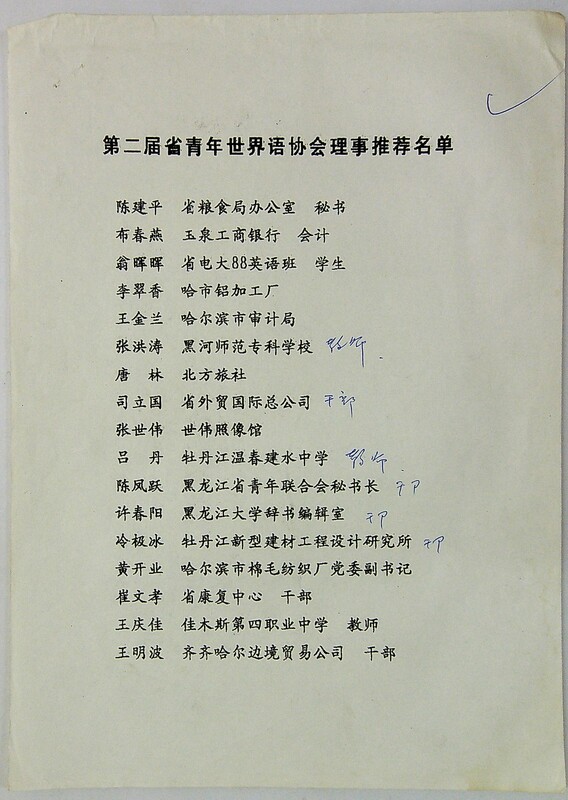 第二届省青年世界语协会理事推荐名单
陈建平 省粮食局办公室 秘书
布春燕 玉泉工商银行 会计
翁晖晖 省电大88英语班 学生
李翠香 哈市铝加工厂
王金兰 哈尔滨市审计局
张洪涛 黑河师范专科学校 教师
唐 林 北方旅社
司立国 省外贸国际总公司 干部
张世伟 世伟照像馆
吕 丹 牡丹江温春建水中学 教师
陈凤跃 黑龙江省青年联合会秘书长 干卩
许春阳 黑龙江大学辞书编辑室 干卩
冷极冰 牡丹江新型建材工程设计研究所 干卩
黄开业 哈尔滨市棉毛纺织厂党委副书记
崔文孝 省康复中心 干部
王庆佳 佳木斯第四职业中学 教师
王明波 齐齐哈尔边境贸易公司 干部